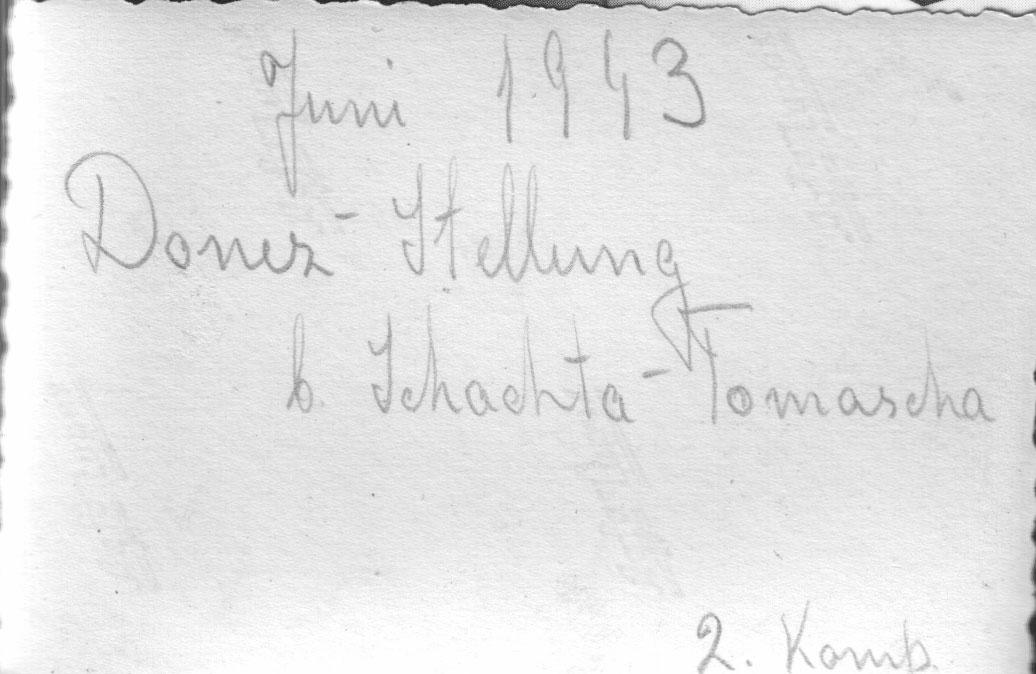 Juni 1943
Donez-Stellung
b. Schachta-Tomascha
2. Komp.